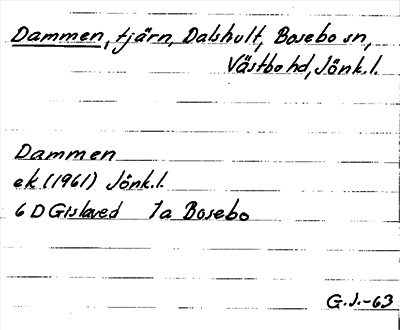 Dammen, tjärn, Dalshult, Bosebo sn,
Västbo hd, Jönk.l.
Dammen
ek (1961) Jönk.l.
6 D Gislaved 7a Bosebo
G.J.-63